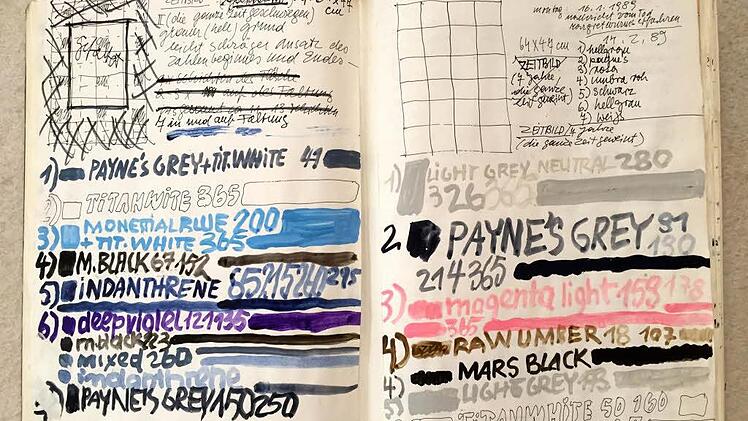 ZEITBILD
cm
(die ganze Zeit geschwiegen)
grauer (hell) grund
leicht schräger Ansatz des
Zahlenbeginnes und Endes
gefaltet
in und auf Faltung
1) PAYNE'S GREY+TiT.WHITE 49
2) TiTANWiTE 365
3) MONESTIALBLUE 200
+ TiT. WHITE 365
4) M.BLACK 67 152
5) iNDANTHRENE 85 215 240 295
6) deepviolet 121 935
m.black 23
mixed 260
indanthrene
7) PAYNE'S GREY 150 250
montag, 16.1.1989
nachricht vom Tod
erfahren
14.2.89
64x47 cm
ZEITBILD
(7 Jahre,
die ganze
Zeit geweint)
1) hellgrau
2) payne's
3) rosa
4) umbra roh
5) schwarz
6) hellgrau
7) weiß
ZEITBILD/7 Jahre
(die ganze Zeit geweint)
1) LIGHT GREY NEUTRAL 280
326 365
2 PAYNE'S GREY 91
130
214 365
3) magenta light 159 178
365
4) RAW UMBER 18 107
MARS BLACK
4) LIGHT GREY 73
5) TiTANWHiTE 50 160